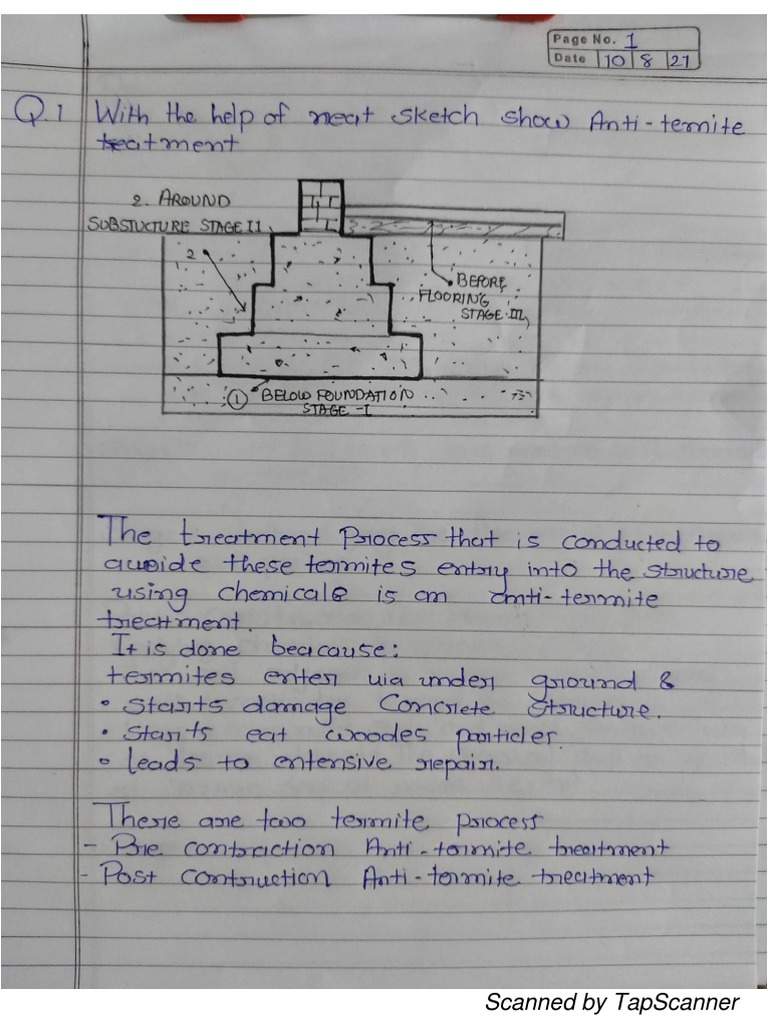 Page No. 1
Date 10 8 21
Q.1 With the help of neat sketch show Anti-temite
teatment
2. AROUND
SUBSTUCTURE STAGE II
2
BEFORE
FLOORING
STAGE III
1 BELOW FOUNDATION
STAGE -I
The treatment Process that is conducted to
avoide these termites entry into the structure
using chemicals is an anti-termite
treatment.
It is done beacause:
termites enter via under ground &
• Starts damage Concrete structure.
• Starts eat woodes particles.
• leads to entensive repair.
There are two termite process
- Pre contraction Anti-termite treatment
- Post contruction Anti-termite treatment
Scanned by TapScanner